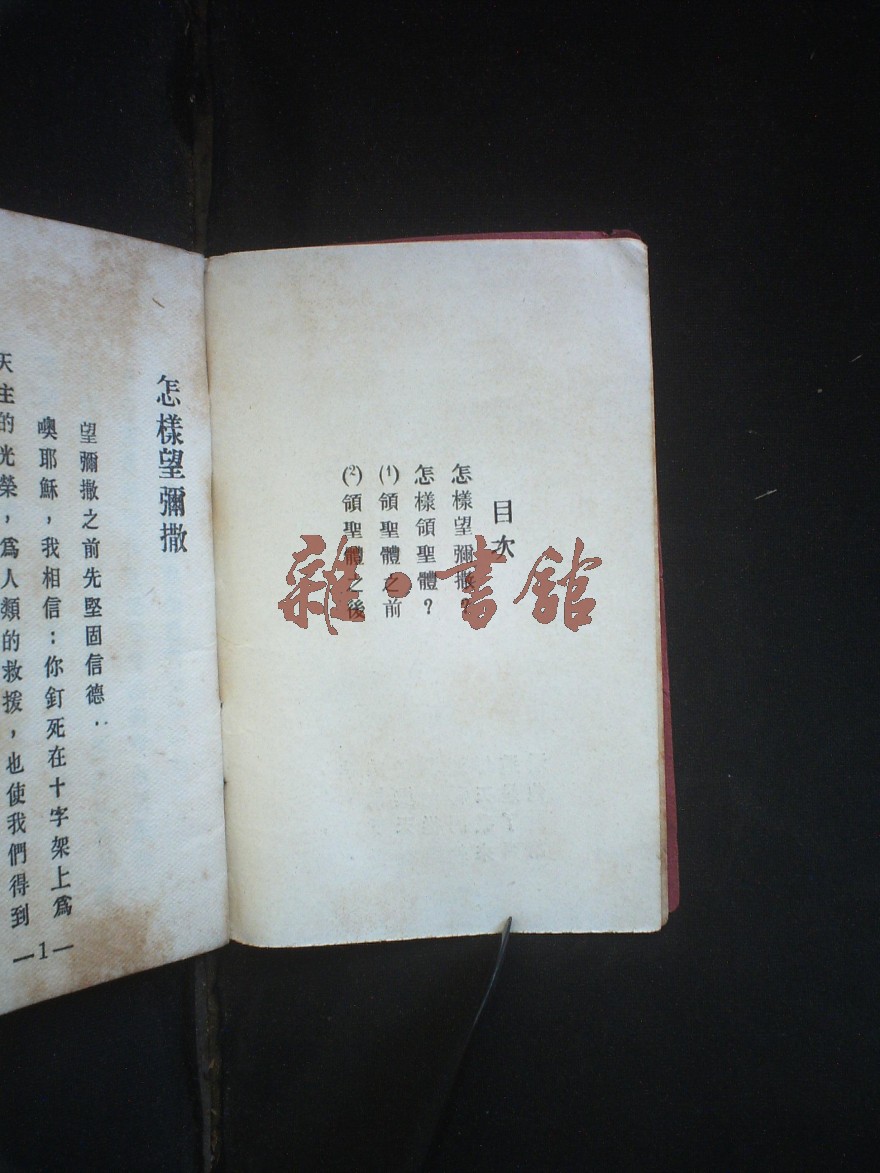 目次
怎樣望彌撒？
怎樣領聖體？
(1)領聖體之前
(2)領聖體之後
雜·書館
怎樣望彌撒
望彌撒之前先堅固信德：
噢耶穌，我相信：你釘死在十字架上爲
天主的光榮，爲人類的救援，也使我們得到
—1—